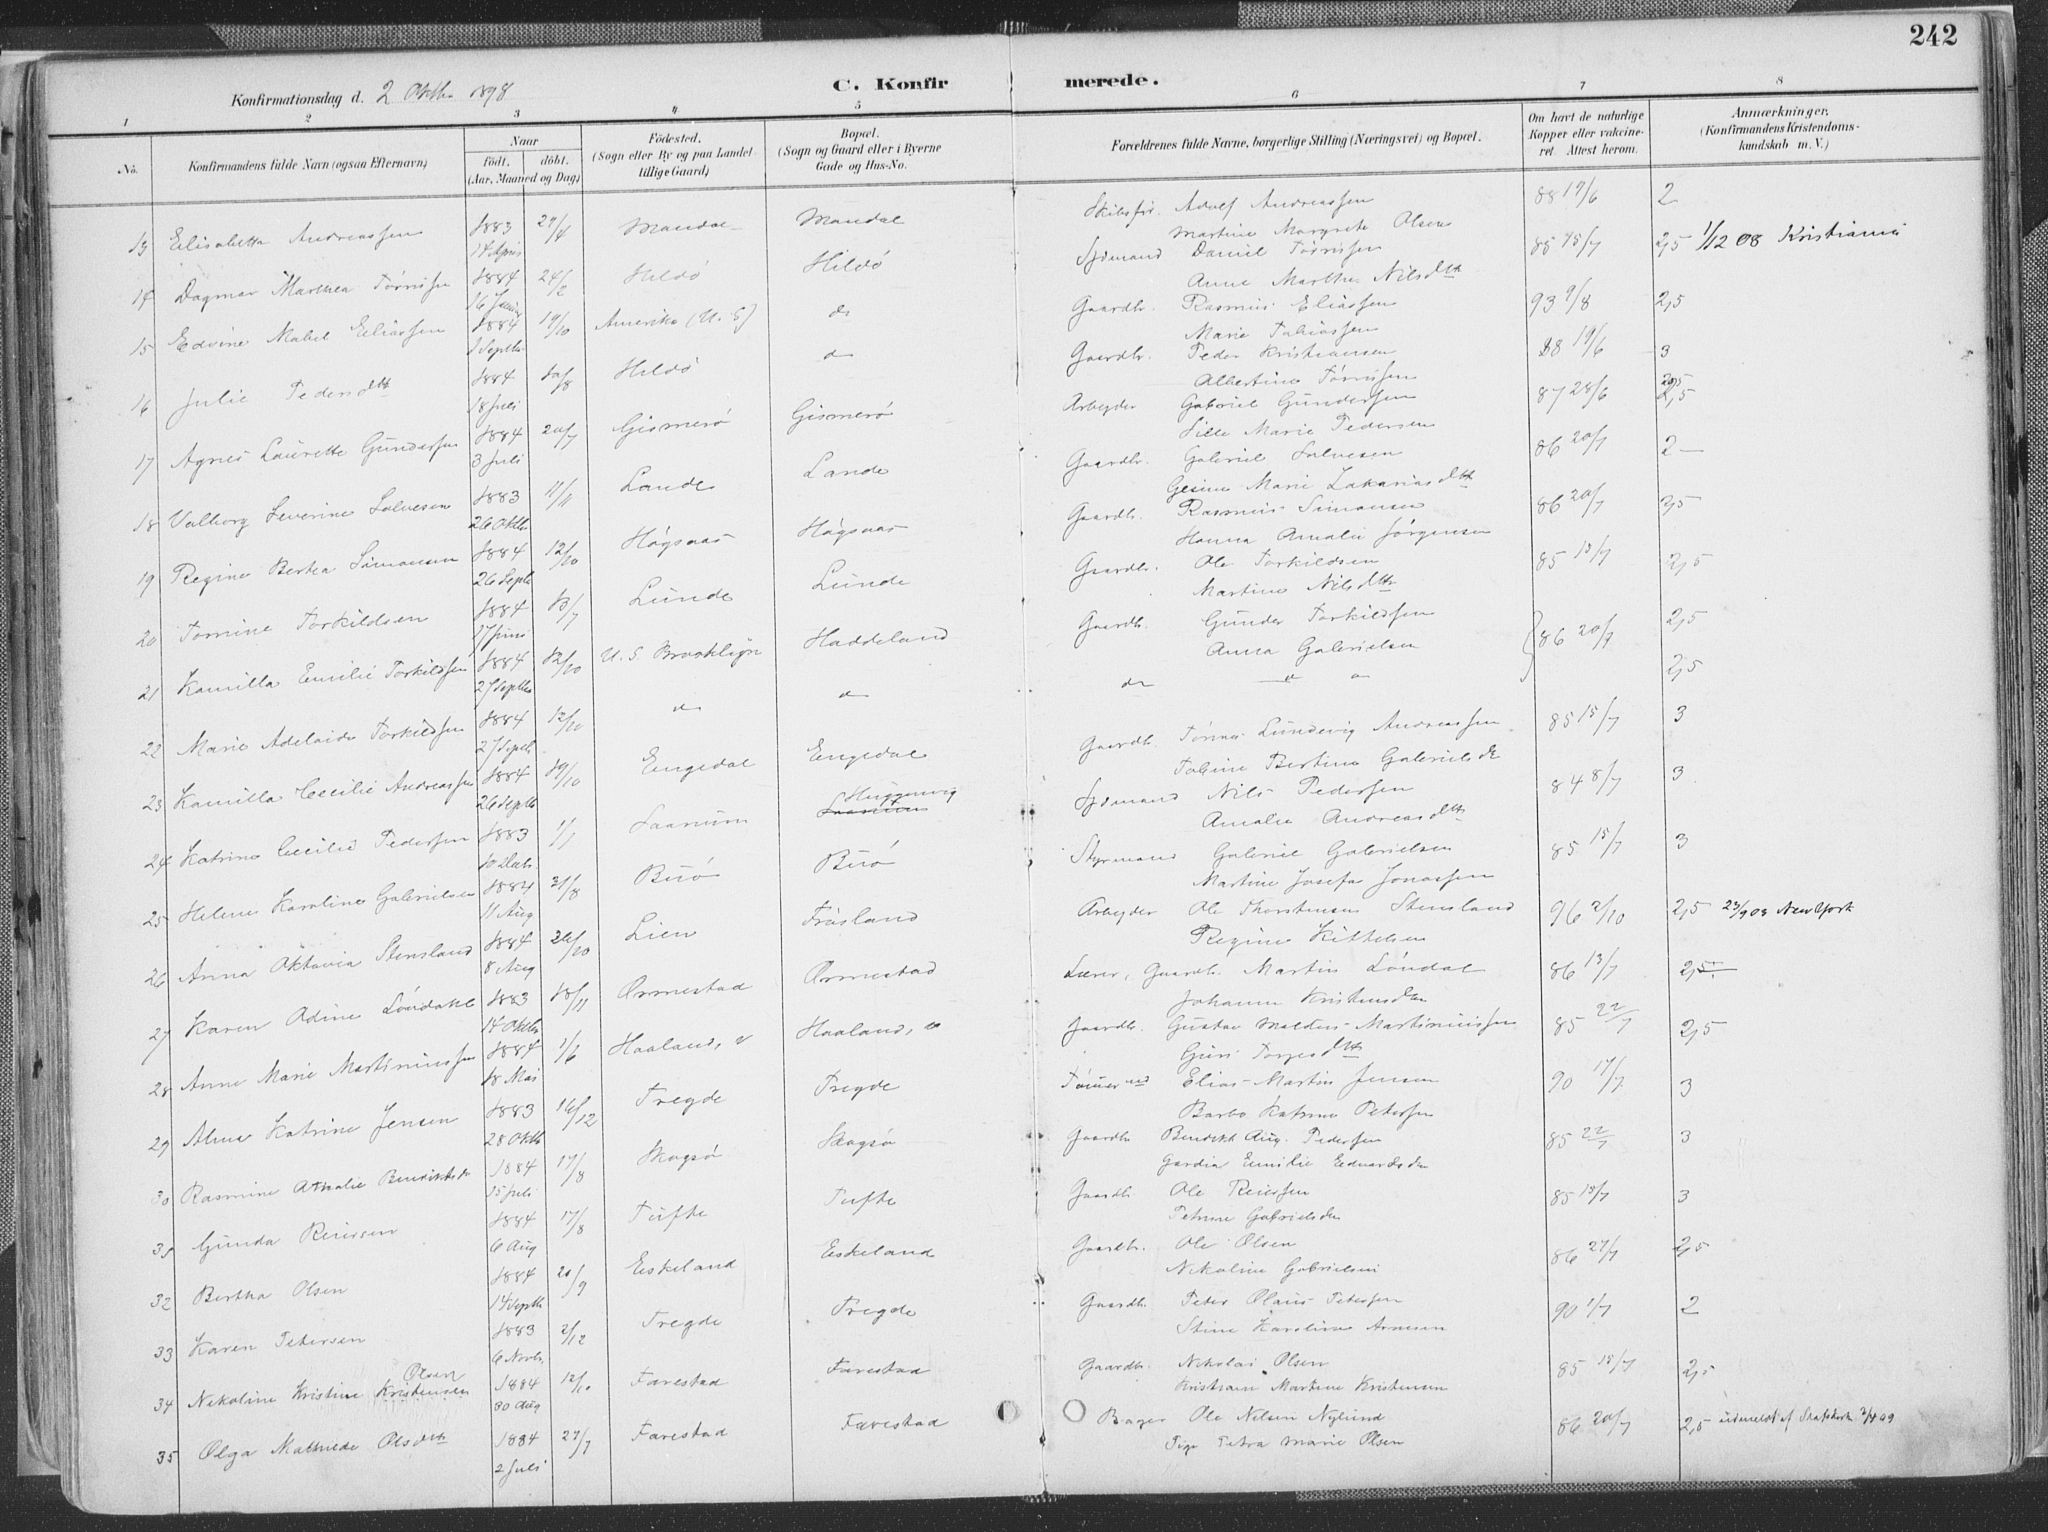 242
Konfirmationsdag d. 2 Oktbr 1898
C. Konfirmerede.
1 2 3 4 5 6 7 8
No.
Konfirmandens fulde Navn (ogsaa Efternavn)
Naar
födt. döbt.
(Aar, Maaned og Dag)
Födested.
(Sogn eller By og paa Landet tillige Gaard)
Bopæl.
(Sogn og Gaard eller i Byerne Gade og Hus-No.
Forældrenes fulde Navne, borgerlige Stilling (Næringsvei) og Bopæl.
Om havt de naturlige Kopper eller vakcineret. Attest herom.
Anmærkninger.
(Konfirmandens Kristendomskundskab m. V.)
13 Elisabetta Andreassen 1883 14 April 27/4 Mandal Mandal Skibsfør. Adolf Andreassen 88 17/6 2
Martine Margrete Olsen
14 Dagmar Marthea Tørrissen 1884 16 Januar 24/2 Hildø Hildø Sjømand Daniel Tørrissen 85 15/7 2,5 1/12 08 Kristiania
Anne Marthea Nilsdtr
15 Edvine Mabel Eliassen 1884 1 Septbr 19/10 Amerika (U.S) do Gaardbr. Rasmus Eliassen 93 9/8 2,5
Marie Tobiassen
16 Julie Pedersdtr 1884 18 Juli 10/8 Hildø do Gaardbr. Peder Kristiansen 88 19/6 3
Albertine Tørrissen
17 Agnes Laurette Gundersen 1884 3 Juli 20/7 Gismerø Gismerø Arbeider Gabriel Gundersen 87 28/6 2,5
Lille Marie Pedersen
18 Valborg Severine Salvesen 1883 26 Oktbr 11/11 Lande Lande Gaardbr. Gabriel Salvesen 86 20/7 2
Gesine Marie Zakariasdtr
19 Regine Bertea Simonsen 1884 26 Septb 12/10 Høgsaas Høgsaas Gaardbr. Rasmus Simonsen 86 20/7 3,5
Hanna Amalie Jørgensen
20 Tomine Torkildsen 1884 17 Juni 13/7 Lunde Lunde Gaardbr. Ole Torkildsen 85 15/7 2,5
Martine Nilsdtr
21 Kamilla Emilie Torkildsen 1884 27 Septbr 12/10 U.S. Brooklyn Haddeland Gaardbr. Gunder Torkildsen 86 20/7 2,5
Anna Gabrielsen
22 Marie Adelaide Torkildsen 1884 27 Septb 12/10 do do do do 2,5
23 Kamilla Cecilie Andreassen 1884 26 Septbr 19/10 Engedal Engedal Gaardb. Tørres Lundevig Andreassen 85 15/7 3
Tobine Bertine Gabrielsdtr
24 Katrine Cecilie Pedersen 1883 10 Decbr 1/1 Saanum Huggenvig Sjømand Nils Pedersen 84 8/7 3
Amalie Andreasdtr
25 Helene Karoline Gabrielsen 1884 11 Aug 31/8 Buø Buø Styrmand Gabriel Gabrielsen 85 15/7 3
Martine Josefa Jonassen
26 Anna Oktavia Stensland 1884 8 Aug 26/10 Lien Frøsland Arbeyder Ole Thorstensen Stensland 96 2/10 2,5 23/9 03 New York
Regine Kittelsen
27 Karen Odine Løndahl 1883 14 Oktbr 18/11 Ørmestad Ørmestad Lærer, Gaardb. Martin Løndal 86 13/7 2,5
Johanne Kristensdtr
28 Anne Marie Martiniussen 1884 18 Mai 1/6 Haaland, v Haaland, v Gaardb. Gustav Moldus Martiniussen 85 22/7 2,5
Guri Torgesdtr
29 Alma Katrine Jensen 1883 28 Oktb 16/12 Tregde Tregde Tømermd Elias Martin Jensen 90 17/7 3
Barbo Katrine Petersen
30 Rasmine Athalie Benediktsdtr 1884 15 Juli 17/8 Skogsø Skogsø Gaardb Benedikt Aug. Pedersen 85 22/7 3
Gardia Emilie Edvardsdtr
31 Gunda Reiersen 1884 6 Aug 17/8 Tufte Tufte Gaardb Ole Reiersen 85 15/7 3
Petrine Gabrielsdtr
32 Bertha Olsen 1884 14 Septb 21/9 Eskeland Eskeland Gaardbr. Ole Olsen 86 27/7 2,5
Nikoline Gabrielsen
33 Karen Petersen 1883 6 Novbr 2/12 Tregde Tregde Gaardb. Peter Olaus Petersen 90 1/7 2
Stine Karoline Arnesen
34 Nikoline Kristine Kristensen Olsen 1884 30 Aug 12/10 Farestad Farestad Gaardbr. Nikolai Olsen 85 15/7 2,5
Kristiane Martine Kristensen
35 Olga Mathilde Olsdtr 1884 2 Juli 27/7 Farestad Farestad Bager Ole Nilsen Nylund 86 20/7 2,5 udmeldt af Statskirk. 2/4 09
Pige Petra Marie Olsen